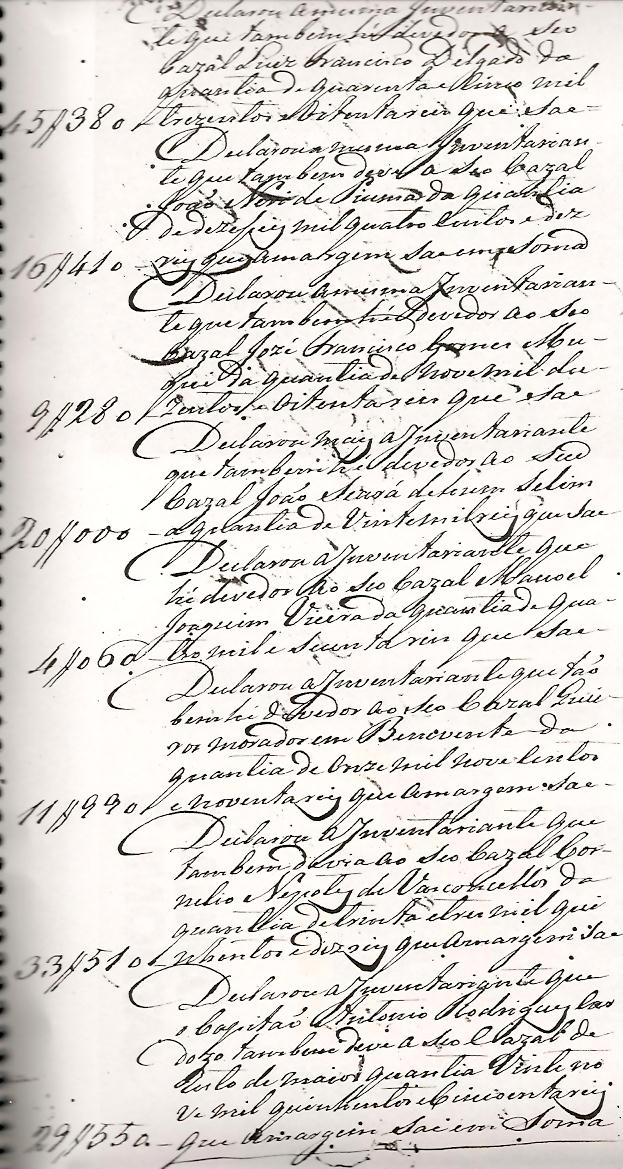 Declarou a mesma Inventarian-
te que tambem hé devedor a seo
Cazal Luiz Francisco Delgado da
quantia de quarenta e sinco mil
45//380 trezentos e Oitenta reis que sae-
Declarou a mesma Inventarian-
te que tambem deve a seo Cazal
João de da quantia
de dezeseis mil quatro Centos e dez
16//410 reis que a margem sae em soma
Declarou a mesma Inventarian-
te que tambem hé Devedor ao seo
Cazal José Francisco Gomes Mu-
qui da quantia de Nove mil du-
9//280 zentos e Oitenta reis que sae
Declarou mais a Inventariante
que tambem hé devedor ao seo
Cazal João Seará de
20//000 - a quantia de Vinte mil reis que sae
Declarou a Inventariante que
hé devedor ao seo Cazal Manoel
Joaquim Vieira da quantia de qua-
4//060 tro mil e secenta reis que sae-
Declarou a Inventariante que tão
bem hé devedor ao seo Cazal
morador em Benevente da
quantia de Onze mil nove Centos
11//990 e noventa reis que a margem sae-
Declarou a Inventariante que
tambem devia ao seo Cazal Cor-
nelio Nepotes de Vasconcellos da
quantia de trinta e tres mil qui
33//510 nhentos e dez reis que a margem sae
Declarou a Inventariante que
o Capitão Antonio Rodrigues Car
dozo tambem deve a seo Cazal de
resto de maior quantia Vinte no
ve mil quinhentos e Cincoenta reis
29//550 - que a margem sai em Soma